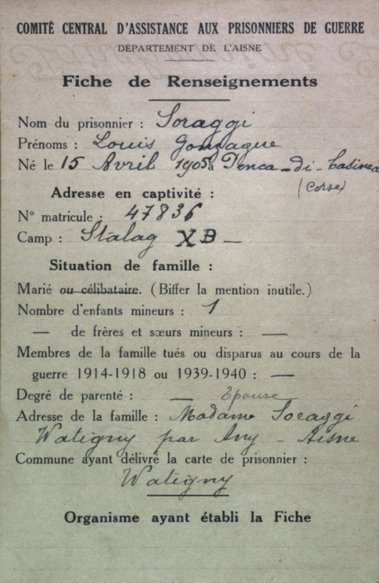 COMITÉ CENTRAL D'ASSISTANCE AUX PRISONNIERS DE GUERRE
DÉPARTEMENT DE L'AISNE
Fiche de Renseignements
Nom du prisonnier : Soraggi
Prénoms : Louis Gonzague
Né le 15 Avril 1905 Penca-di-Casinca
(Corse)
Adresse en captivité :
N° matricule : 47836
Camp : Stalag XB —
Situation de famille :
Marié ou célibataire. (Biffer la mention inutile.)
Nombre d'enfants mineurs : 1
— de frères et sœurs mineurs : —
Membres de la famille tués ou disparus au cours de la
guerre 1914-1918 ou 1939-1940 : —
Degré de parenté : — Epouse
Adresse de la famille : Madame Soraggi
Watigny par Any - Aisne
Commune ayant délivré la carte de prisonnier :
Watigny
Organisme ayant établi la Fiche